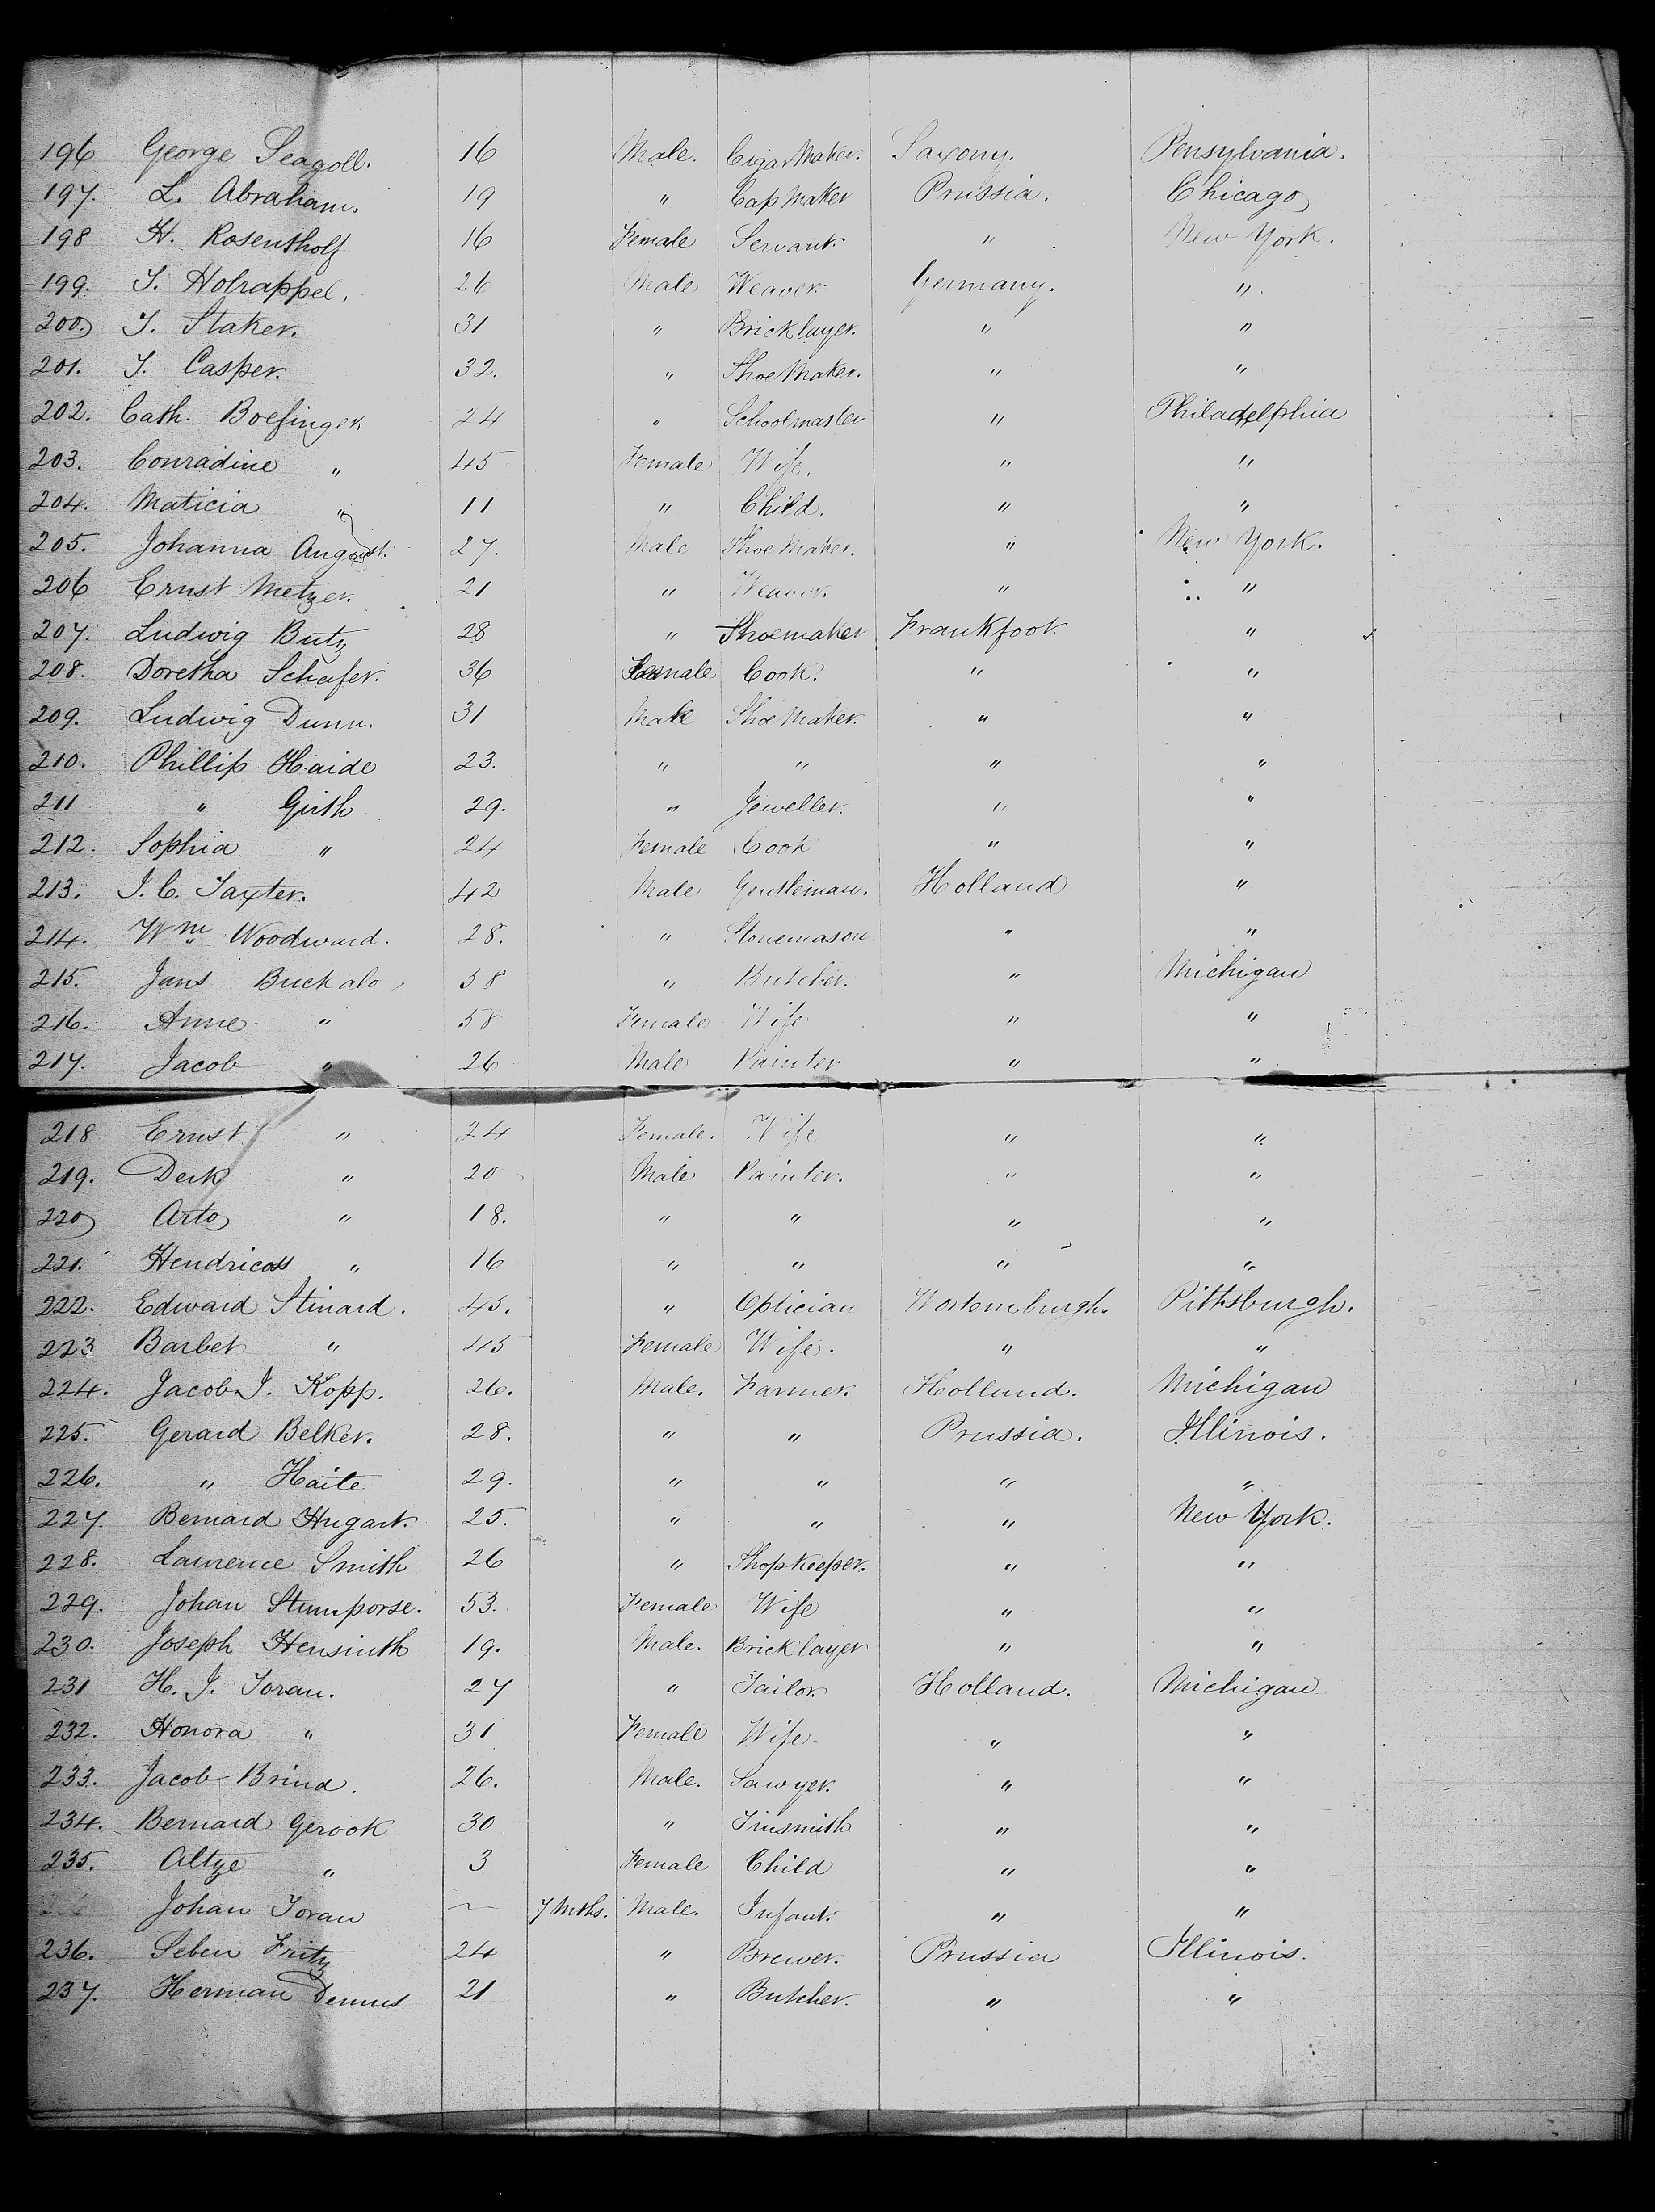 196 George Seagoll. 16 Male. Cigar Maker. Saxony. Pensylvania.
197. L. Abraham. 19 " Cap Maker Prussia. Chicago
198 H. Rosentholf 16 Female Servant. " New York.
199. J. Holrappel. 26 Male Weaver. Germany. "
200 J. Staker. 31 " Bricklayer. " "
201. J. Casper. 32. " Shoe Maker. " "
202. Cath. Boefinger 24 " Schoolmaster " Philadelphia
203. Conradine " 45 Female Wife. " "
204. Maticia " 11 " Child. " "
205. Johanna August. 27. Male Shoe Maker. " New York.
206 Ernst Metzer. 21 " Weaver. " "
207. Ludwig Butz 28 " Shoemaker Frankfoot. "
208. Doretha Schafer. 36 Female Cook. " "
209. Ludwig Dunn. 31 Male Shoe Maker. " "
210. Phillip Haide 23. " " " "
211 " Girth 29. " Jeweller. " "
212. Sophia " 24 Female Cook " "
213. J. C. Taxter. 42 Male Gentleman. Holland "
214. Wm Woodward. 28. " Stonemason. " "
215. Jans Buckalo 58 " Butcher. " Michigan
216. Anne " 58 Female Wife " "
217. Jacob " 26 Male Painter " "
218 Ernst " 24 Female. Wife " "
219. Derk " 20 Male Painter. " "
220 Arto " 18. " " " "
221. Hendricass " 16 " " " "
222. Edward Stinard. 45. " Optician Wortemburgh. Pittsburgh.
223 Barbet " 45 Female Wife. " "
224. Jacob J. Kopp. 26. Male. Farmer. Holland. Michigan
225. Gerard Belker. 28. " " Prussia. Illinois.
226. " Haite 29. " " " "
227. Bernard Hugart. 25. " " " New York.
228. Laurence Smith 26 " Shopkeeper. " "
229. Johan Stumporse. 53. Female Wife " "
230. Joseph Hensinth 19. Male. Bricklayer " "
231 H. J. Toran. 27 " Tailor. Holland. Michigan
232. Honora " 31 Female Wife " "
233. Jacob Brind. 26. Male. Sawyer. " "
234. Bernard Gerook 30 " Tinsmith " "
235. Altze " 3 Female Child " "
Johan Toran — 7 Mths. Male. Infant. " "
236. Seben Fritz 24 " Brewer. Prussia Illinois.
237. Herman Dennis 21 " Butcher. " "